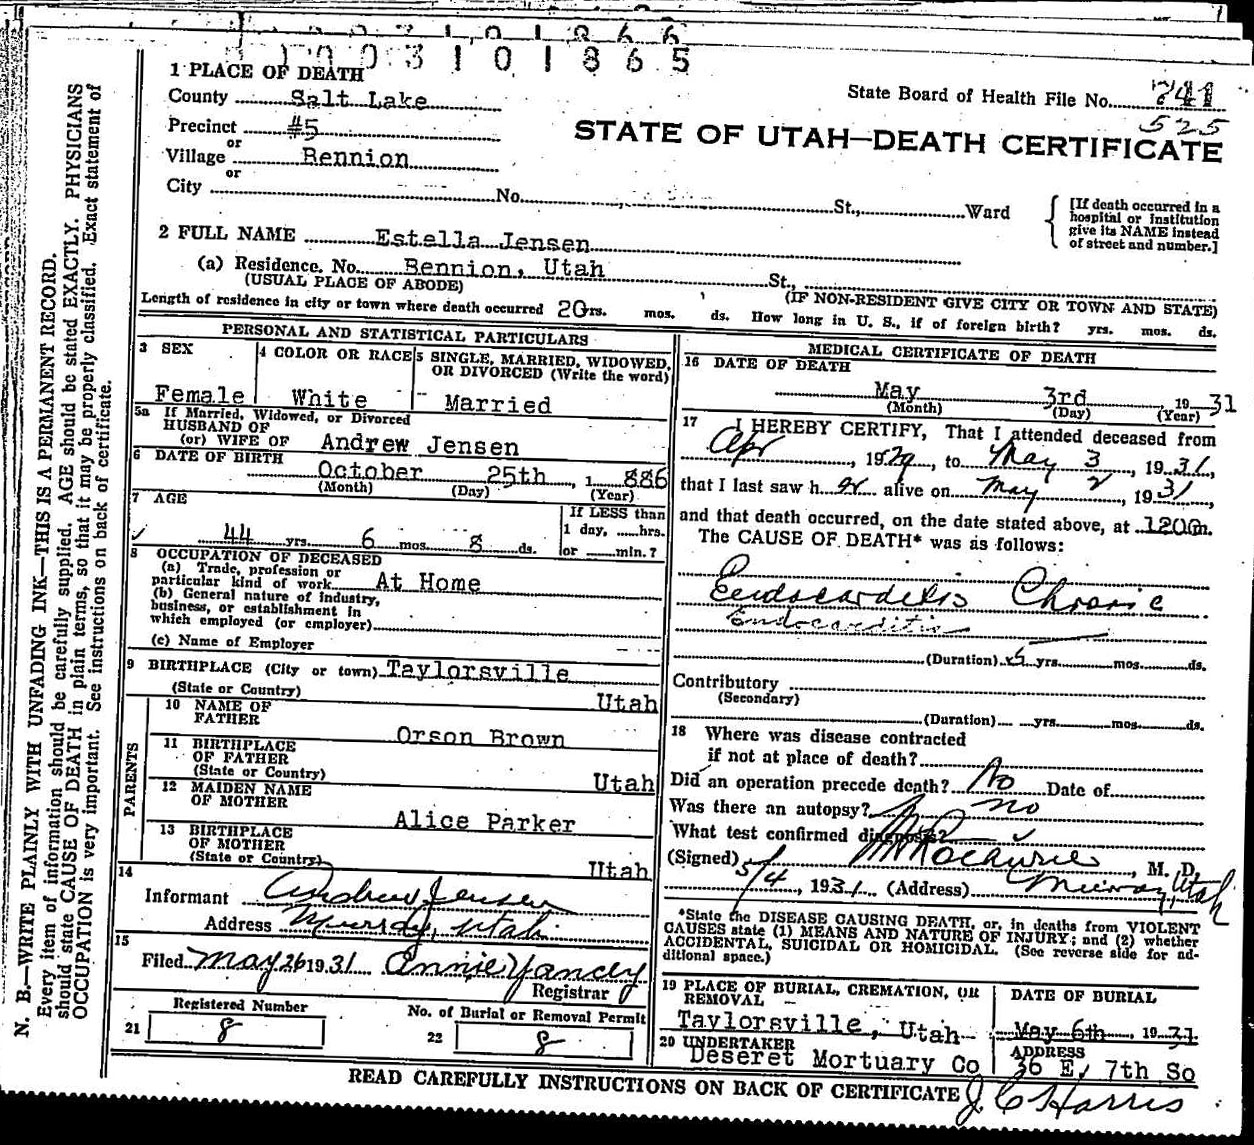 1 0 0 3 1 0 1 8 6 5
1 PLACE OF DEATH
County Salt Lake
State Board of Health File No. 741
525
Precinct #5
STATE OF UTAH—DEATH CERTIFICATE
or
Village Bennion
or
City No. St., Ward
[If death occurred in a hospital or institution give its NAME instead of street and number.]
2 FULL NAME Estella Jensen
(a) Residence. No. Bennion, Utah St.,
(USUAL PLACE OF ABODE) (IF NON-RESIDENT GIVE CITY OR TOWN AND STATE)
Length of residence in city or town where death occurred 20 yrs. mos. ds. How long in U. S., if of foreign birth? yrs. mos. ds.
PERSONAL AND STATISTICAL PARTICULARS
3 SEX
Female
4 COLOR OR RACE
White
5 SINGLE, MARRIED, WIDOWED, OR DIVORCED (Write the word)
Married
5a If Married, Widowed, or Divorced
HUSBAND OF
(or) WIFE OF Andrew Jensen
6 DATE OF BIRTH
October 25th, 1886
(Month) (Day) (Year)
7 AGE
44 yrs. 6 mos. 8 ds.
If LESS than
1 day, hrs.
or min.?
8 OCCUPATION OF DECEASED
(a) Trade, profession or
particular kind of work At Home
(b) General nature of industry,
business, or establishment in
which employed (or employer)
(c) Name of Employer
9 BIRTHPLACE (City or town) Taylorsville
(State or Country) Utah
PARENTS
10 NAME OF
FATHER Orson Brown
11 BIRTHPLACE
OF FATHER
(State or Country) Utah
12 MAIDEN NAME
OF MOTHER Alice Parker
13 BIRTHPLACE
OF MOTHER
(State or Country) Utah
14
Informant Andrew Jensen
Address Murray, Utah
15
Filed May 26 1931 Annie Yancey
Registrar
Registered Number
21 8
No. of Burial or Removal Permit
22 8
MEDICAL CERTIFICATE OF DEATH
16 DATE OF DEATH
May 3rd, 1931
(Month) (Day) (Year)
17 I HEREBY CERTIFY, That I attended deceased from
Apr, 1929, to May 3, 1931,
that I last saw her alive on May 2, 1931
and that death occurred, on the date stated above, at 1200 m.
The CAUSE OF DEATH* was as follows:
Endocarditis Chronic
Endocarditis
(Duration) 5 yrs. mos. ds.
Contributory
(Secondary)
(Duration) yrs. mos. ds.
18 Where was disease contracted
if not at place of death?
Did an operation precede death? No Date of
Was there an autopsy? no
What test confirmed diagnosis?
(Signed) , M. D.
5/4, 1931 (Address) Murray, Utah
*State the DISEASE CAUSING DEATH, or, in deaths from VIOLENT
CAUSES state (1) MEANS AND NATURE OF INJURY; and (2) whether
ACCIDENTAL, SUICIDAL OR HOMICIDAL. (See reverse side for ad-
ditional space.)
19 PLACE OF BURIAL, CREMATION, OR
REMOVAL
Taylorsville, Utah
DATE OF BURIAL
May 6th, 1931
20 UNDERTAKER
Deseret Mortuary Co
ADDRESS
36 E, 7th So
READ CAREFULLY INSTRUCTIONS ON BACK OF CERTIFICATE
J C Harris
N. B.—WRITE PLAINLY WITH UNFADING INK—THIS IS A PERMANENT RECORD.
Every item of information should be carefully supplied. AGE should be stated EXACTLY. PHYSICIANS
should state CAUSE OF DEATH in plain terms, so that it may be properly classified. Exact statement of
OCCUPATION is very important. See instructions on back of certificate.